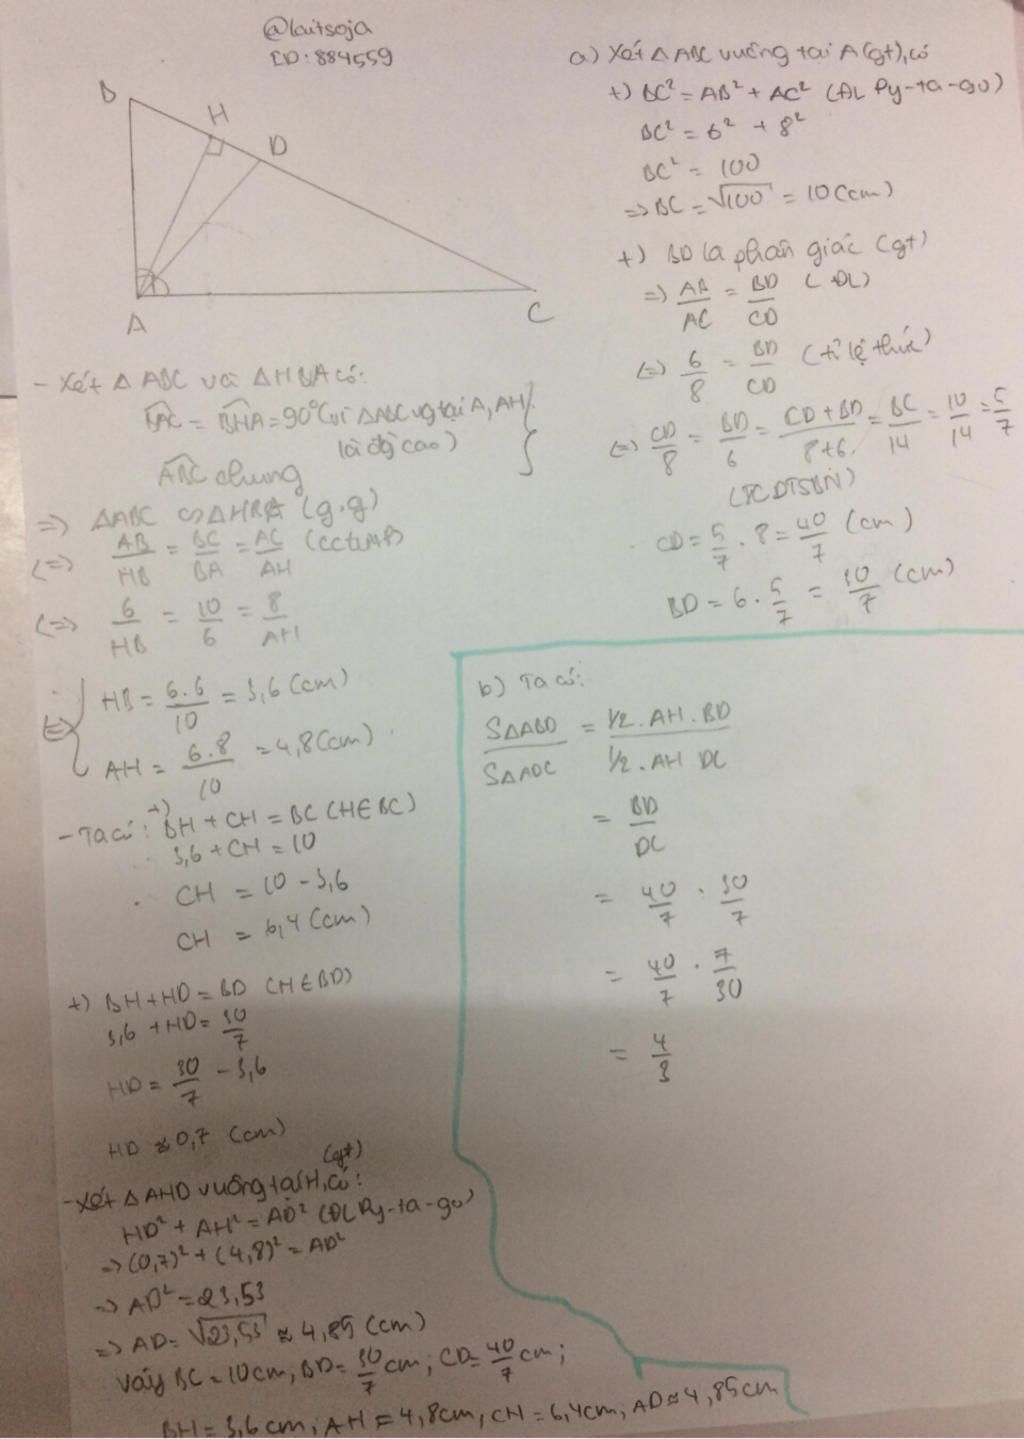 @laitsoja
ID: 884559
B
H
D
A
C
a) Xét △ ABC vuông tại A (gt), có
+) BC² = AB² + AC² (ĐL Py-ta-go)
BC² = 6² + 8²
BC² = 100
=> BC = √100 = 10 (cm)
+) BD là phân giác (gt)
=> AB/AC = BD/CD (ĐL)
<=> 6/8 = BD/CD (tỉ lệ thức)
<=> CD/8 = BD/6 = CD + BD/8+6 = BC/14 = 10/14 = 5/7
(TCDTSBN)
CD = 5/7 . 8 = 40/7 (cm)
BD = 6 . 5/7 = 30/7 (cm)
- Xét △ ABC và △HBA có:
BAC = BHA = 90° (vì △ABC vg tại A, AH
là đg cao)
ABC chung
=> △ABC ∽ △HBA (g.g)
<=> AB/HB = BC/BA = AC/AH
<=> 6/HB = 10/6 = 8/AH
<=> HB = 6.6/10 = 3,6 (cm)
AH = 6.8/10 = 4,8 (cm)
- Ta có: +) BH + CH = BC (H∈BC)
3,6 + CH = 10
CH = 10 - 3,6
CH = 6,4 (cm)
+) BH + HD = BD (H∈BD)
3,6 + HD = 30/7
HD = 30/7 - 3,6
HD ≈ 0,7 (cm)
- Xét △ AHD vuông tại H, có: (gt)
HD² + AH² = AD² (ĐL Py-ta-go)
=> (0,7)² + (4,8)² = AD²
=> AD² = 23,53
=> AD = √23,53 ≈ 4,85 (cm)
Vậy BC = 10cm, BD = 30/7 cm; CD = 40/7 cm;
BH = 3,6 cm; AH = 4,8cm, CH = 6,4cm; AD ≈ 4,85cm
b) Ta có:
S△ABD/S△ADC = 1/2. AH. BD/1/2. AH DC
= BD/DC
= 40/7 . 30/7
= 40/7 . 7/30
= 4/3